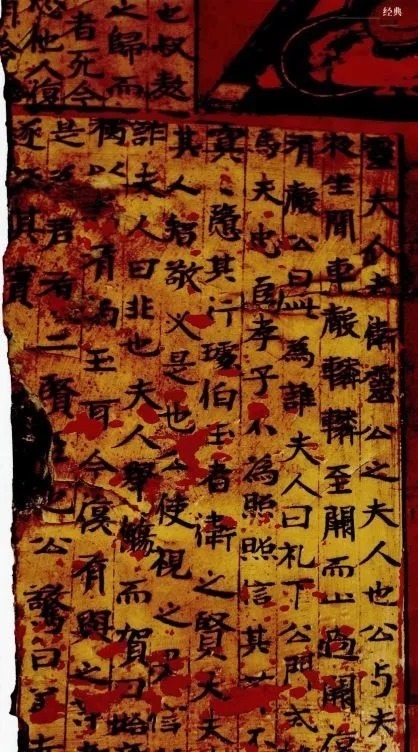 经典
也叔敖
之歸而
者死今
他人復
靈夫人者衛靈公之夫人也公与夫
夜坐聞車廠轔轔至闕而止過闕復
有廠公曰此為誰夫人曰礼下公門式
馬夫忠臣孝子不為照照信其不
冥墮其行璩伯玉者衛之賢大夫
其人智敬必是也公使視之果信
詐夫人曰非也夫人舉觴而賀曰始
獨以有為王可今復有與之
是君有二賢臣也公驚曰
遂其實